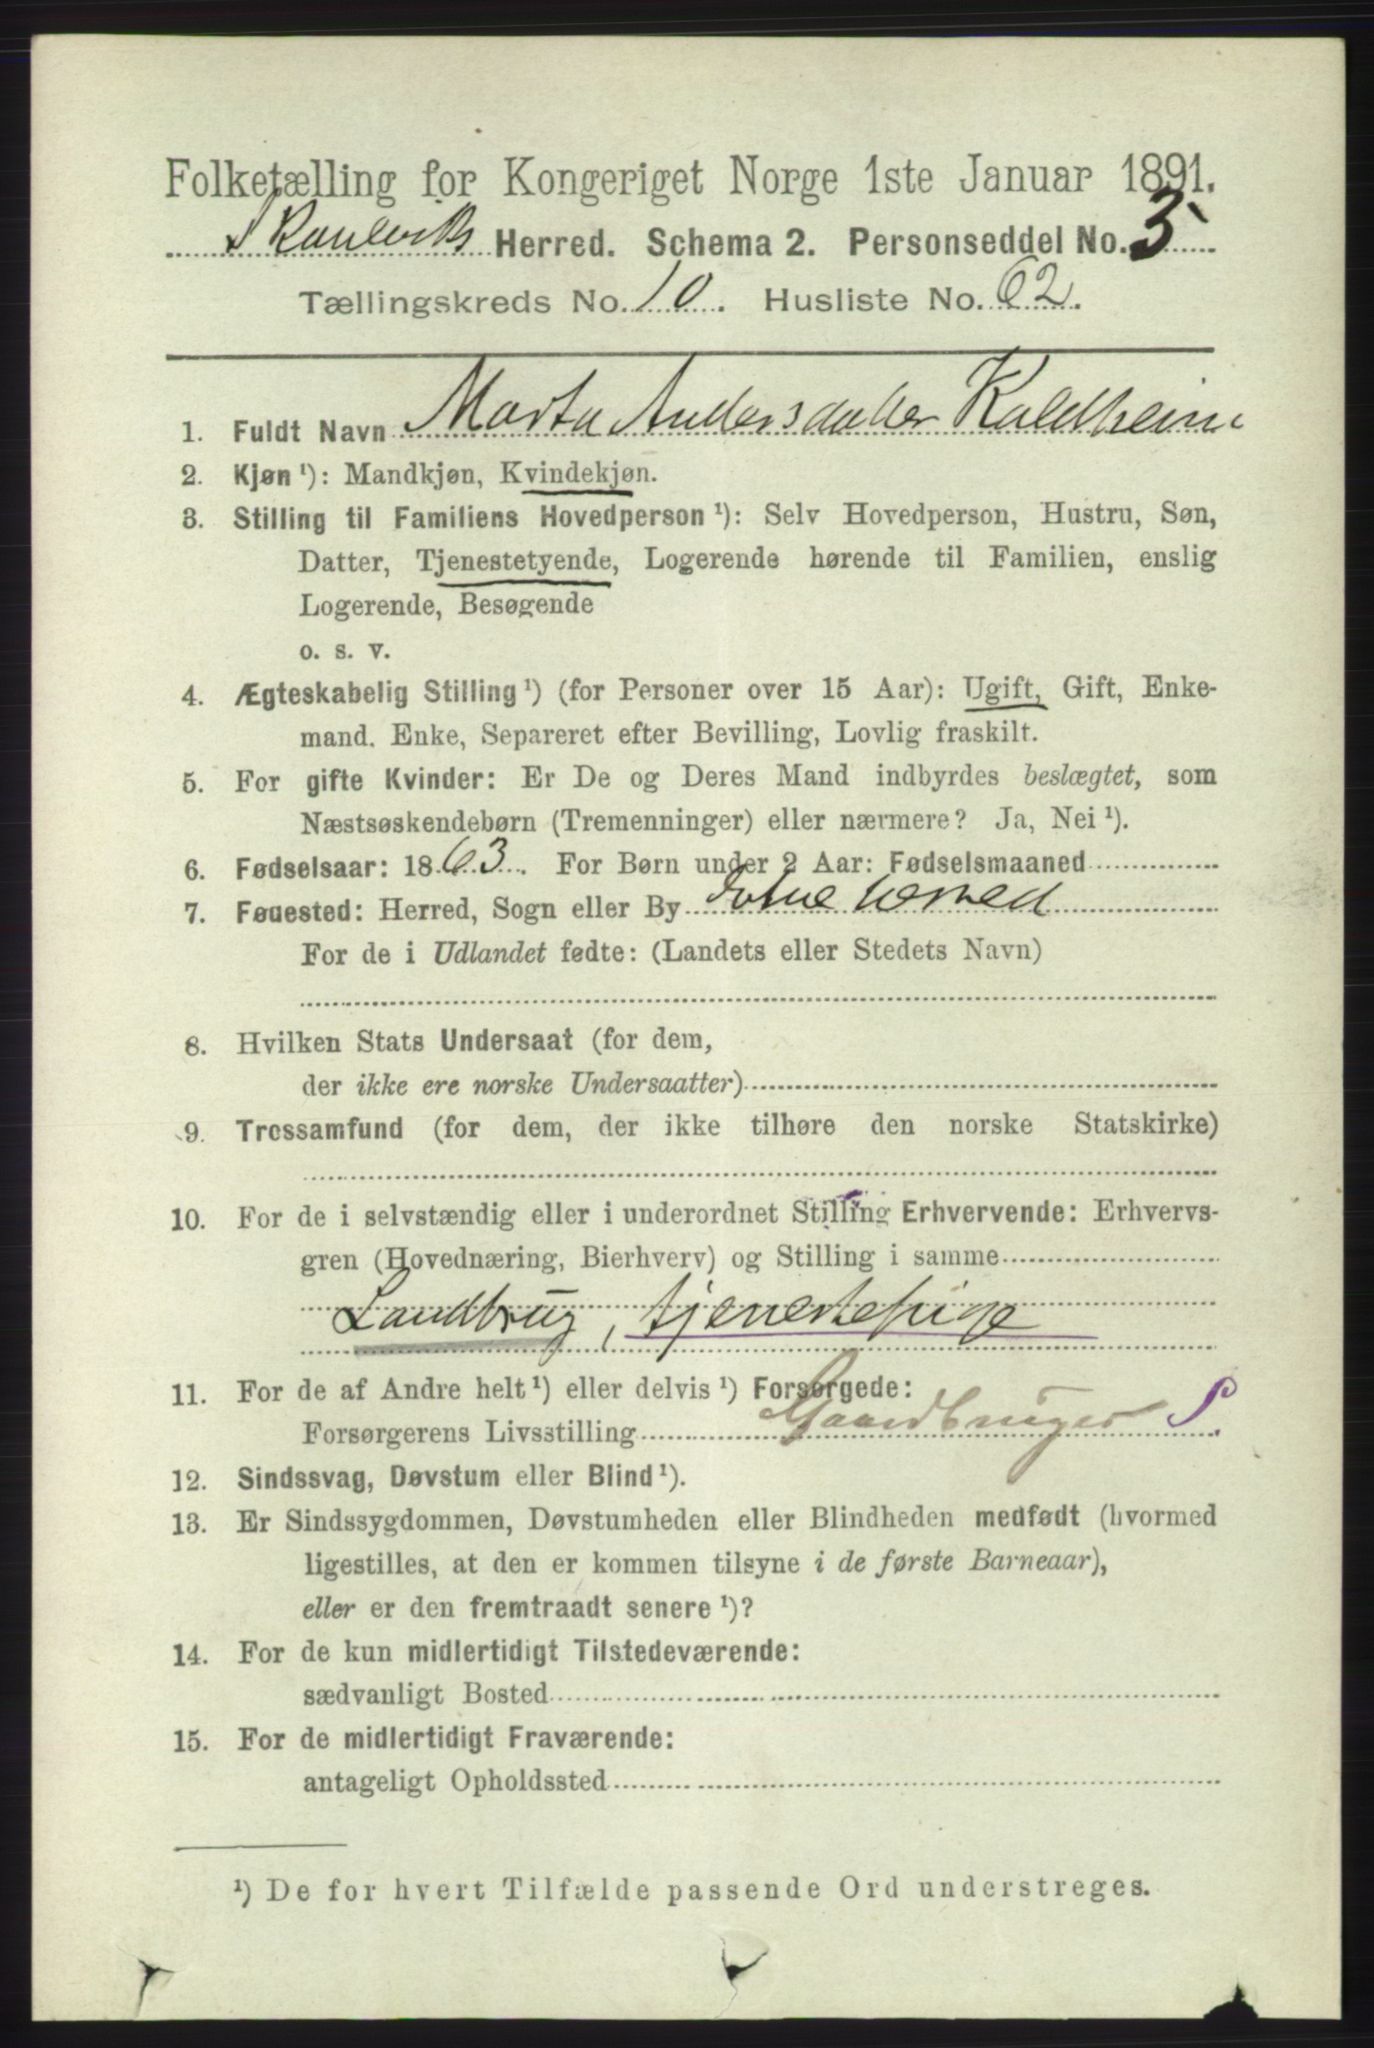 Folketælling for Kongeriget Norge 1ste Januar 1891.
Skaneviks Herred. Schema 2. Personseddel No. 3
Tællingskreds No. 10. Husliste No. 62.
1. Fuldt Navn Marta Andersdatter Kaldheim
2. Kjøn ¹): Mandkjøn, Kvindekjøn.
3. Stilling til Familiens Hovedperson ¹): Selv Hovedperson, Hustru, Søn,
Datter, Tjenestetyende, Logerende hørende til Familien, enslig
Logerende, Besøgende
o. s. v.
4. Ægteskabelig Stilling ¹) (for Personer over 15 Aar): Ugift, Gift, Enke-
mand. Enke, Separeret efter Bevilling, Lovlig fraskilt.
5. For gifte Kvinder: Er De og Deres Mand indbyrdes beslægtet, som
Næstsøskendebørn (Tremenninger) eller nærmere? Ja, Nei ¹).
6. Fødselsaar: 1863. For Børn under 2 Aar: Fødselsmaaned
7. Føuested: Herred, Sogn eller By Etne herred
For de i Udlandet fødte: (Landets eller Stedets Navn)
8. Hvilken Stats Undersaat (for dem,
der ikke ere norske Undersaatter)
9. Trossamfund (for dem, der ikke tilhøre den norske Statskirke)
10. For de i selvstændig eller i underordnet Stilling Erhvervende: Erhvervs-
gren (Hovednæring, Bierhverv) og Stilling i samme
Landbrug, tjenestepige
11. For de af Andre helt ¹) eller delvis ¹) Forsørgede:
Forsørgerens Livsstilling Gaardbruger S.
12. Sindssvag, Døvstum eller Blind ¹).
13. Er Sindssygdommen, Døvstumheden eller Blindheden medfødt (hvormed
ligestilles, at den er kommen tilsyne i de første Barneaar),
eller er den fremtraadt senere ¹)?
14. For de kun midlertidigt Tilstedeværende:
sædvanligt Bosted
15. For de midlertidigt Fraværende:
antageligt Opholdssted
¹) De for hvert Tilfælde passende Ord understreges.